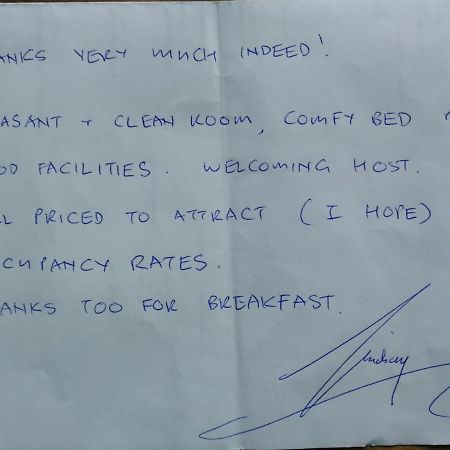 ANKS VERY MUCH INDEED!
ASANT + CLEAN ROOM, COMFY BED
OD FACILITIES. WELCOMING HOST.
L PRICED TO ATTRACT (I HOPE)
CUPANCY RATES.
ANKS TOO FOR BREAKFAST.
Lindsay